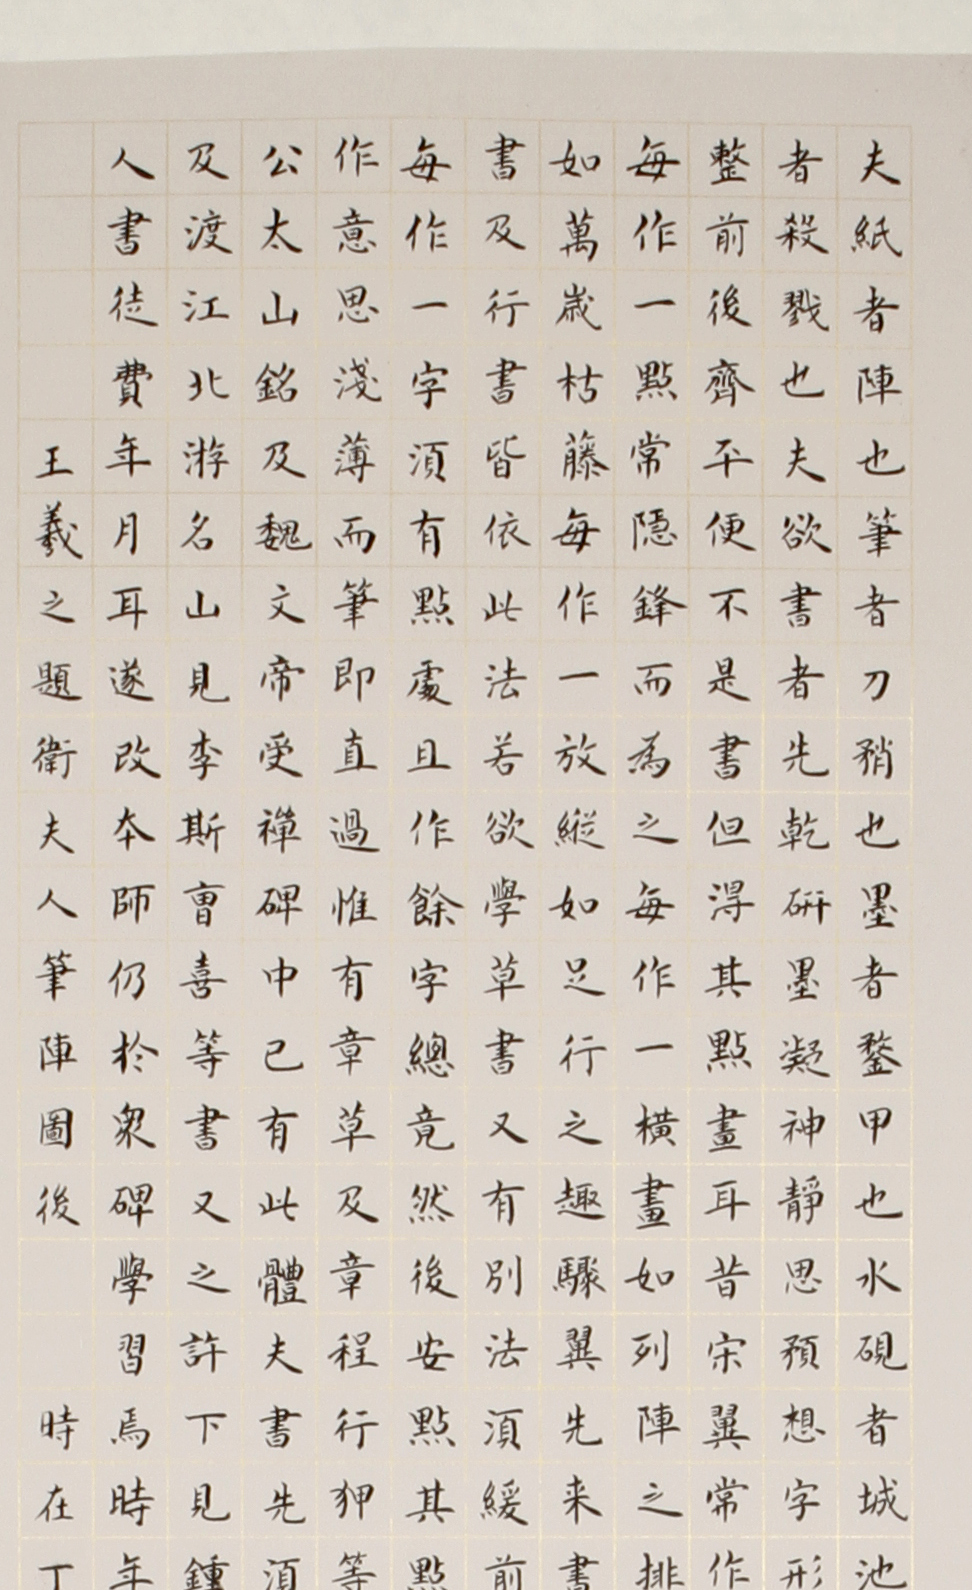 夫紙者陣也筆者刀矟也墨者鍪甲也水硯者城池
者殺戮也夫欲書者先乾研墨凝神靜思預想字形
整前後齊平便不是書但得其點畫耳昔宋翼常作
每作一點常隱鋒而為之每作一橫畫如列陣之排
如萬歲枯藤每作一放縱如足行之趣驟翼先来書
書及行書皆依此法若欲學草書又有別法須緩前
每作一字須有點處且作餘字總竟然後安點其點
作意思淺薄而筆即直過惟有章草及章程行狎等
公太山銘及魏文帝受禪碑中已有此體夫書先須
及渡江北游名山見李斯曹喜等書又之許下見鍾
人書徒費年月耳遂改本師仍於衆碑學習焉時年
王羲之題衛夫人筆陣圖後 時在丁